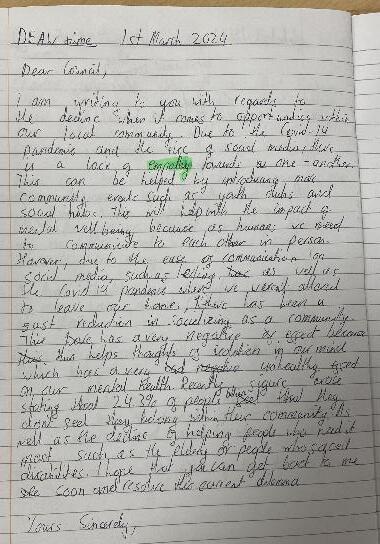 DEAR time 1st March 2024
Dear Council,
I am writing to you with regards to
the decline when it comes to opportunities within
our local community. Due to the Covid-19
pandemic and the rise of social media, there
is a lack of empathy towards one-another.
This can be helped by introducing more
community events such as youth clubs and
social hubs. This will help with the impact of
mental wellbeing because as humans we need
to communicate to each other in person.
However, due to the ease of communication on
social media, such as texting as well as
the Covid 19 pandemic where we weren't allowed
to leave our homes, there has been a
vast reduction in socialising as a community.
This has a very negative because
this helps thoughts of isolation in our mind
which has a very unhealthy
on our mental health. Recently, figure
stating that 24.3% of people that they
dont feel they belong within their community. As
well as the decline of helping people who need it
most such as the elderly or people who
disabilities. I hope that you can get back to me
soon and resolve this current dilemma
Yours Sincerely,